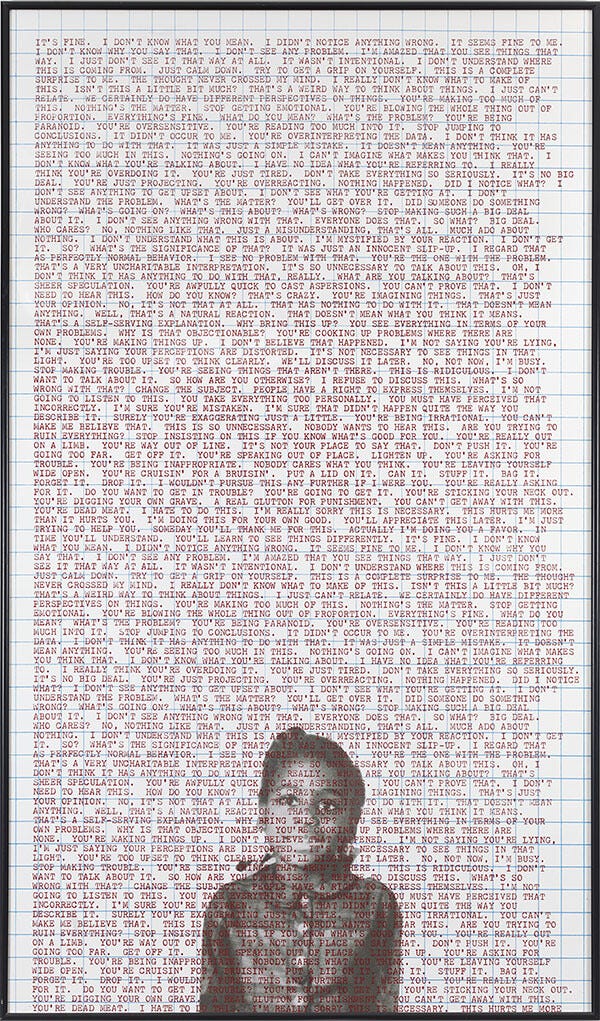 IT'S FINE. I DON'T KNOW WHAT YOU MEAN. I DIDN'T NOTICE ANYTHING WRONG. IT SEEMS FINE TO ME.
I DON'T KNOW WHY YOU SAY THAT. I DON'T SEE ANY PROBLEM. I'M AMAZED THAT YOU SEE THINGS THAT
WAY. I JUST DON'T SEE IT THAT WAY AT ALL. IT WASN'T INTENTIONAL. I DON'T UNDERSTAND WHERE
THIS IS COMING FROM. JUST CALM DOWN. TRY TO GET A GRIP ON YOURSELF. THIS IS A COMPLETE
SURPRISE TO ME. THE THOUGHT NEVER CROSSED MY MIND. I REALLY DON'T KNOW WHAT TO MAKE OF
THIS. ISN'T THIS A LITTLE BIT MUCH? THAT'S A WEIRD WAY TO THINK ABOUT THINGS. I JUST CAN'T
RELATE. WE CERTAINLY DO HAVE DIFFERENT PERSPECTIVES ON THINGS. YOU'RE MAKING TOO MUCH OF
THIS. NOTHING'S THE MATTER. STOP GETTING EMOTIONAL. YOU'RE BLOWING THE WHOLE THING OUT OF
PROPORTION. EVERYTHING'S FINE. WHAT DO YOU MEAN? WHAT'S THE PROBLEM? YOU'RE BEING
PARANOID. YOU'RE OVERSENSITIVE. YOU'RE READING TOO MUCH INTO IT. STOP JUMPING TO
CONCLUSIONS. IT DIDN'T OCCUR TO ME. YOU'RE OVERINTERPRETING THE DATA. I DON'T THINK IT HAS
ANYTHING TO DO WITH THAT. IT WAS JUST A SIMPLE MISTAKE. IT DOESN'T MEAN ANYTHING. YOU'RE
SEEING TOO MUCH IN THIS. NOTHING'S GOING ON. I CAN'T IMAGINE WHAT MAKES YOU THINK THAT. I
DON'T KNOW WHAT YOU'RE TALKING ABOUT. I HAVE NO IDEA WHAT YOU'RE REFERRING TO. I REALLY
THINK YOU'RE OVERDOING IT. YOU'RE JUST TIRED. DON'T TAKE EVERYTHING SO SERIOUSLY. IT'S NO BIG
DEAL. YOU'RE JUST PROJECTING. YOU'RE OVERREACTING. NOTHING HAPPENED. DID I NOTICE WHAT? I
DON'T SEE ANYTHING TO GET UPSET ABOUT. I DON'T SEE WHAT YOU'RE GETTING AT. I DON'T
UNDERSTAND THE PROBLEM. WHAT'S THE MATTER? YOU'LL GET OVER IT. DID SOMEONE DO SOMETHING
WRONG? WHAT'S GOING ON? WHAT'S THIS ABOUT? WHAT'S WRONG? STOP MAKING SUCH A BIG DEAL
ABOUT IT. I DON'T SEE ANYTHING WRONG WITH THAT. EVERYONE DOES THAT. SO WHAT? BIG DEAL.
WHO CARES? NO, NOTHING LIKE THAT. JUST A MISUNDERSTANDING, THAT'S ALL. MUCH ADO ABOUT
NOTHING. I DON'T UNDERSTAND WHAT THIS IS ABOUT. I'M MYSTIFIED BY YOUR REACTION. I DON'T GET
IT. SO? WHAT'S THE SIGNIFICANCE OF THAT? IT WAS JUST AN INNOCENT SLIP-UP. I REGARD THAT
AS PERFECTLY NORMAL BEHAVIOR. I SEE NO PROBLEM WITH THAT. YOU'RE THE ONE WITH THE PROBLEM.
THAT'S A VERY UNCHARITABLE INTERPRETATION. IT'S SO UNNECESSARY TO TALK ABOUT THIS. OH, I
DON'T THINK IT HAS ANYTHING TO DO WITH THAT, REALLY. WHAT ARE YOU TALKING ABOUT? THAT'S
SHEER SPECULATION. YOU'RE AWFULLY QUICK TO CAST ASPERSIONS. YOU CAN'T PROVE THAT. I DON'T
NEED TO HEAR THIS. HOW DO YOU KNOW? THAT'S CRAZY. YOU'RE IMAGINING THINGS. THAT'S JUST
YOUR OPINION. NO, IT'S NOT THAT AT ALL. THAT HAS NOTHING TO DO WITH IT. THAT DOESN'T MEAN
ANYTHING. WELL, THAT'S A NATURAL REACTION. THAT DOESN'T MEAN WHAT YOU THINK IT MEANS.
THAT'S A SELF-SERVING EXPLANATION. WHY BRING THIS UP? YOU SEE EVERYTHING IN TERMS OF YOUR
OWN PROBLEMS. WHY IS THAT OBJECTIONABLE? YOU'RE COOKING UP PROBLEMS WHERE THERE ARE
NONE. YOU'RE MAKING THINGS UP. I DON'T BELIEVE THAT HAPPENED. I'M NOT SAYING YOU'RE LYING,
I'M JUST SAYING YOUR PERCEPTIONS ARE DISTORTED. IT'S NOT NECESSARY TO SEE THINGS IN THAT
LIGHT. YOU'RE TOO UPSET TO THINK CLEARLY. WE'LL DISCUSS IT LATER. NO, NOT NOW, I'M BUSY.
STOP MAKING TROUBLE. YOU'RE SEEING THINGS THAT AREN'T THERE. THIS IS RIDICULOUS. I DON'T
WANT TO TALK ABOUT IT. SO HOW ARE YOU OTHERWISE? I REFUSE TO DISCUSS THIS. WHAT'S SO
WRONG WITH THAT? CHANGE THE SUBJECT. PEOPLE HAVE A RIGHT TO EXPRESS THEMSELVES. I'M NOT
GOING TO LISTEN TO THIS. YOU TAKE EVERYTHING TOO PERSONALLY. YOU MUST HAVE PERCEIVED THAT
INCORRECTLY. I'M SURE YOU'RE MISTAKEN. I'M SURE THAT DIDN'T HAPPEN QUITE THE WAY YOU
DESCRIBE IT. SURELY YOU'RE EXAGGERATING JUST A LITTLE. YOU'RE BEING IRRATIONAL. YOU CAN'T
MAKE ME BELIEVE THAT. THIS IS SO UNNECESSARY. NOBODY WANTS TO HEAR THIS. ARE YOU TRYING TO
RUIN EVERYTHING? STOP INSISTING ON THIS IF YOU KNOW WHAT'S GOOD FOR YOU. YOU'RE REALLY OUT
ON A LIMB. YOU'RE WAY OUT OF LINE. IT'S NOT YOUR PLACE TO SAY THAT. DON'T PUSH IT. YOU'RE
GOING TOO FAR. GET OFF IT. YOU'RE SPEAKING OUT OF PLACE. LIGHTEN UP. YOU'RE ASKING FOR
TROUBLE. YOU'RE BEING INAPPROPRIATE. NOBODY CARES WHAT YOU THINK. YOU'RE LEAVING YOURSELF
WIDE OPEN. YOU'RE CRUISIN' FOR A BRUISIN'. PUT A LID ON IT. CAN IT. STUFF IT. BAG IT.
FORGET IT. DROP IT. I WOULDN'T PURSUE THIS ANY FURTHER IF I WERE YOU. YOU'RE REALLY ASKING
FOR IT. DO YOU WANT TO GET IN TROUBLE? YOU'RE GOING TO GET IT. YOU'RE STICKING YOUR NECK OUT.
YOU'RE DIGGING YOUR OWN GRAVE. A REAL GLUTTON FOR PUNISHMENT. YOU CAN'T GET AWAY WITH THIS.
YOU'RE DEAD MEAT. I HATE TO DO THIS. I'M REALLY SORRY THIS IS NECESSARY. THIS HURTS ME MORE
THAN IT HURTS YOU. I'M DOING THIS FOR YOUR OWN GOOD. YOU'LL APPRECIATE THIS LATER. I'M JUST
TRYING TO HELP YOU. SOMEDAY YOU'LL THANK ME FOR THIS. ACTUALLY I'M DOING YOU A FAVOR. IN
TIME YOU'LL UNDERSTAND. YOU'LL LEARN TO SEE THINGS DIFFERENTLY. IT'S FINE. I DON'T KNOW
WHAT YOU MEAN. I DIDN'T NOTICE ANYTHING WRONG. IT SEEMS FINE TO ME. I DON'T KNOW WHY YOU
SAY THAT. I DON'T SEE ANY PROBLEM. I'M AMAZED THAT YOU SEE THINGS THAT WAY. I JUST DON'T
SEE IT THAT WAY AT ALL. IT WASN'T INTENTIONAL. I DON'T UNDERSTAND WHERE THIS IS COMING FROM.
JUST CALM DOWN. TRY TO GET A GRIP ON YOURSELF. THIS IS A COMPLETE SURPRISE TO ME. THE THOUGHT
NEVER CROSSED MY MIND. I REALLY DON'T KNOW WHAT TO MAKE OF THIS. ISN'T THIS A LITTLE BIT MUCH?
THAT'S A WEIRD WAY TO THINK ABOUT THINGS. I JUST CAN'T RELATE. WE CERTAINLY DO HAVE DIFFERENT
PERSPECTIVES ON THINGS. YOU'RE MAKING TOO MUCH OF THIS. NOTHING'S THE MATTER. STOP GETTING
EMOTIONAL. YOU'RE BLOWING THE WHOLE THING OUT OF PROPORTION. EVERYTHING'S FINE. WHAT DO YOU
MEAN? WHAT'S THE PROBLEM? YOU'RE BEING PARANOID. YOU'RE OVERSENSITIVE. YOU'RE READING TOO
MUCH INTO IT. STOP JUMPING TO CONCLUSIONS. IT DIDN'T OCCUR TO ME. YOU'RE OVERINTERPRETING THE
DATA. I DON'T THINK IT HAS ANYTHING TO DO WITH THAT. IT WAS JUST A SIMPLE MISTAKE. IT DOESN'T
MEAN ANYTHING. YOU'RE SEEING TOO MUCH IN THIS. NOTHING'S GOING ON. I CAN'T IMAGINE WHAT MAKES
YOU THINK THAT. I DON'T KNOW WHAT YOU'RE TALKING ABOUT. I HAVE NO IDEA WHAT YOU'RE REFERRING
TO. I REALLY THINK YOU'RE OVERDOING IT. YOU'RE JUST TIRED. DON'T TAKE EVERYTHING SO SERIOUSLY.
IT'S NO BIG DEAL. YOU'RE JUST PROJECTING. YOU'RE OVERREACTING. NOTHING HAPPENED. DID I NOTICE
WHAT? I DON'T SEE ANYTHING TO GET UPSET ABOUT. I DON'T SEE WHAT YOU'RE GETTING AT. I DON'T
UNDERSTAND THE PROBLEM. WHAT'S THE MATTER? YOU'LL GET OVER IT. DID SOMEONE DO SOMETHING
WRONG? WHAT'S GOING ON? WHAT'S THIS ABOUT? WHAT'S WRONG? STOP MAKING SUCH A BIG DEAL
ABOUT IT. I DON'T SEE ANYTHING WRONG WITH THAT. EVERYONE DOES THAT. SO WHAT? BIG DEAL.
WHO CARES? NO, NOTHING LIKE THAT. JUST A MISUNDERSTANDING, THAT'S ALL. MUCH ADO ABOUT
NOTHING. I DON'T UNDERSTAND WHAT THIS IS ABOUT. I'M MYSTIFIED BY YOUR REACTION. I DON'T GET
IT. SO? WHAT'S THE SIGNIFICANCE OF THAT? IT WAS JUST AN INNOCENT SLIP-UP. I REGARD THAT
AS PERFECTLY NORMAL BEHAVIOR. I SEE NO PROBLEM WITH THAT. YOU'RE THE ONE WITH THE PROBLEM.
THAT'S A VERY UNCHARITABLE INTERPRETATION. IT'S SO UNNECESSARY TO TALK ABOUT THIS. OH, I
DON'T THINK IT HAS ANYTHING TO DO WITH THAT, REALLY. WHAT ARE YOU TALKING ABOUT? THAT'S
SHEER SPECULATION. YOU'RE AWFULLY QUICK TO CAST ASPERSIONS. YOU CAN'T PROVE THAT. I DON'T
NEED TO HEAR THIS. HOW DO YOU KNOW? THAT'S CRAZY. YOU'RE IMAGINING THINGS. THAT'S JUST
YOUR OPINION. NO, IT'S NOT THAT AT ALL. THAT HAS NOTHING TO DO WITH IT. THAT DOESN'T MEAN
ANYTHING. WELL, THAT'S A NATURAL REACTION. THAT DOESN'T MEAN WHAT YOU THINK IT MEANS.
THAT'S A SELF-SERVING EXPLANATION. WHY BRING THIS UP? YOU SEE EVERYTHING IN TERMS OF YOUR
OWN PROBLEMS. WHY IS THAT OBJECTIONABLE? YOU'RE COOKING UP PROBLEMS WHERE THERE ARE
NONE. YOU'RE MAKING THINGS UP. I DON'T BELIEVE THAT HAPPENED. I'M NOT SAYING YOU'RE LYING,
I'M JUST SAYING YOUR PERCEPTIONS ARE DISTORTED. IT'S NOT NECESSARY TO SEE THINGS IN THAT
LIGHT. YOU'RE TOO UPSET TO THINK CLEARLY. WE'LL DISCUSS IT LATER. NO, NOT NOW, I'M BUSY.
STOP MAKING TROUBLE. YOU'RE SEEING THINGS THAT AREN'T THERE. THIS IS RIDICULOUS. I DON'T
WANT TO TALK ABOUT IT. SO HOW ARE YOU OTHERWISE? I REFUSE TO DISCUSS THIS. WHAT'S SO
WRONG WITH THAT? CHANGE THE SUBJECT. PEOPLE HAVE A RIGHT TO EXPRESS THEMSELVES. I'M NOT
GOING TO LISTEN TO THIS. YOU TAKE EVERYTHING TOO PERSONALLY. YOU MUST HAVE PERCEIVED THAT
INCORRECTLY. I'M SURE YOU'RE MISTAKEN. I'M SURE THAT DIDN'T HAPPEN QUITE THE WAY YOU
DESCRIBE IT. SURELY YOU'RE EXAGGERATING JUST A LITTLE. YOU'RE BEING IRRATIONAL. YOU CAN'T
MAKE ME BELIEVE THAT. THIS IS SO UNNECESSARY. NOBODY WANTS TO HEAR THIS. ARE YOU TRYING TO
RUIN EVERYTHING? STOP INSISTING ON THIS IF YOU KNOW WHAT'S GOOD FOR YOU. YOU'RE REALLY OUT
ON A LIMB. YOU'RE WAY OUT OF LINE. IT'S NOT YOUR PLACE TO SAY THAT. DON'T PUSH IT. YOU'RE
GOING TOO FAR. GET OFF IT. YOU'RE SPEAKING OUT OF PLACE. LIGHTEN UP. YOU'RE ASKING FOR
TROUBLE. YOU'RE BEING INAPPROPRIATE. NOBODY CARES WHAT YOU THINK. YOU'RE LEAVING YOURSELF
WIDE OPEN. YOU'RE CRUISIN' FOR A BRUISIN'. PUT A LID ON IT. CAN IT. STUFF IT. BAG IT.
FORGET IT. DROP IT. I WOULDN'T PURSUE THIS ANY FURTHER IF I WERE YOU. YOU'RE REALLY ASKING
FOR IT. DO YOU WANT TO GET IN TROUBLE? YOU'RE GOING TO GET IT. YOU'RE STICKING YOUR NECK OUT.
YOU'RE DIGGING YOUR OWN GRAVE. A REAL GLUTTON FOR PUNISHMENT. YOU CAN'T GET AWAY WITH THIS.
YOU'RE DEAD MEAT. I HATE TO DO THIS. I'M REALLY SORRY THIS IS NECESSARY. THIS HURTS ME MORE